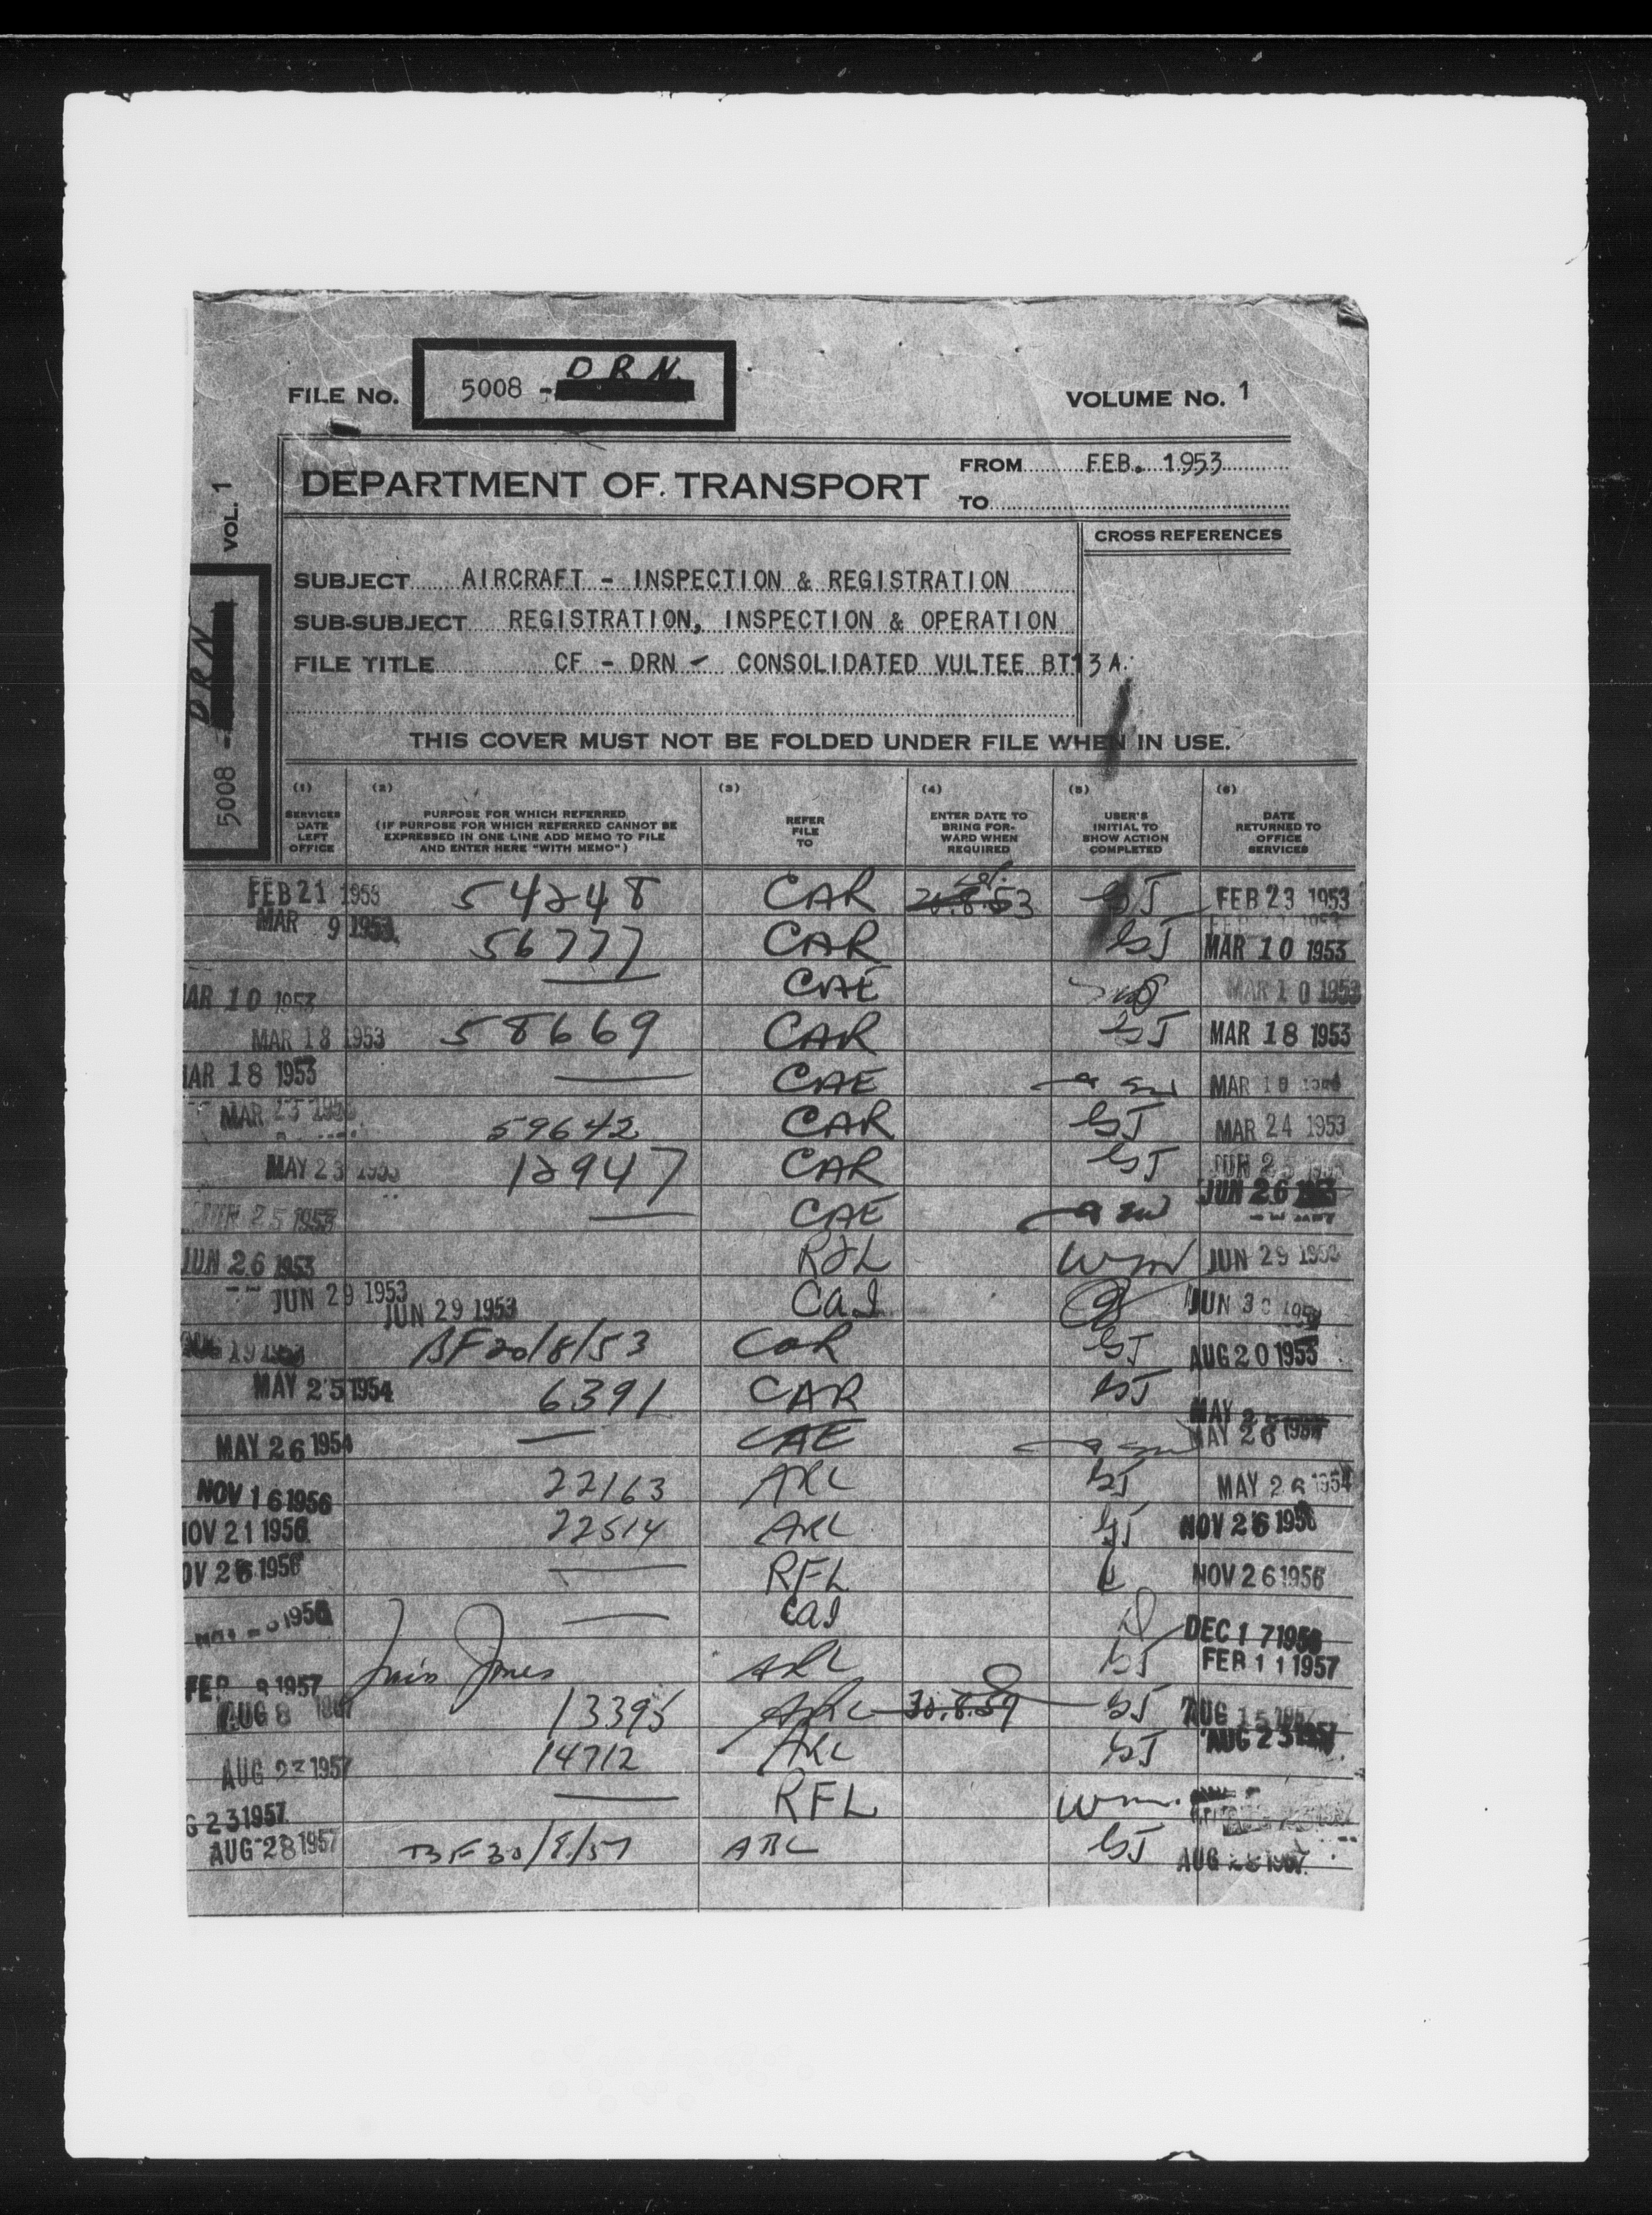 FILE No. 5008 - D R N.
VOLUME No. 1
DEPARTMENT OF TRANSPORT
FROM FEB. 1953
TO
CROSS REFERENCES
VOL. 1
5008 - DRN
SUBJECT AIRCRAFT - INSPECTION & REGISTRATION
SUB-SUBJECT REGISTRATION, INSPECTION & OPERATION
FILE TITLE CF - DRN - CONSOLIDATED VULTEE BT13A.
THIS COVER MUST NOT BE FOLDED UNDER FILE WHEN IN USE.
(1) SERVICES DATE LEFT OFFICE
(2) PURPOSE FOR WHICH REFERRED (IF PURPOSE FOR WHICH REFERRED CANNOT BE EXPRESSED IN ONE LINE ADD MEMO TO FILE AND ENTER HERE "WITH MEMO")
(3) REFER FILE TO
(4) ENTER DATE TO BRING FORWARD WHEN REQUIRED
(5) USER'S INITIAL TO SHOW ACTION COMPLETED
(6) DATE RETURNED TO OFFICE SERVICES
FEB 21 1953 54248 CAR 20.8.53 FEB 23 1953
MAR 9 1953 56777 CAR MAR 10 1953
MAR 10 1953 CAE MAR 10 1953
MAR 18 1953 58669 CAR MAR 18 1953
MAR 18 1953 CAE MAR
MAR 23 59642 CAR MAR 24 1953
MAY 23 12947 CAR JUN 2
JUN 25 1953 CAE JUN 26
JUN 26 1953 JUN 29
JUN 29 1953 JUN 29 1953 CAI JUN 30
BF 20/8/53 CAR AUG 20 1953
MAY 25 1954 6391 CAR MAY
MAY 26 1954 CAE MAY 26
NOV 16 1956 22163 ARL MAY 26 1954
NOV 21 1956 22514 ARL NOV 26 1956
NOV 26 1956 RFL NOV 26 1956
CAI DEC 17 1956
1957 Jones ARL FEB 11 1957
AUG 8 13395 ARL AUG 15
AUG 23 1957 14712 ARL AUG 23 1957
23 1957 RFL
AUG 28 1957 BF 30/8/57 ARL AUG